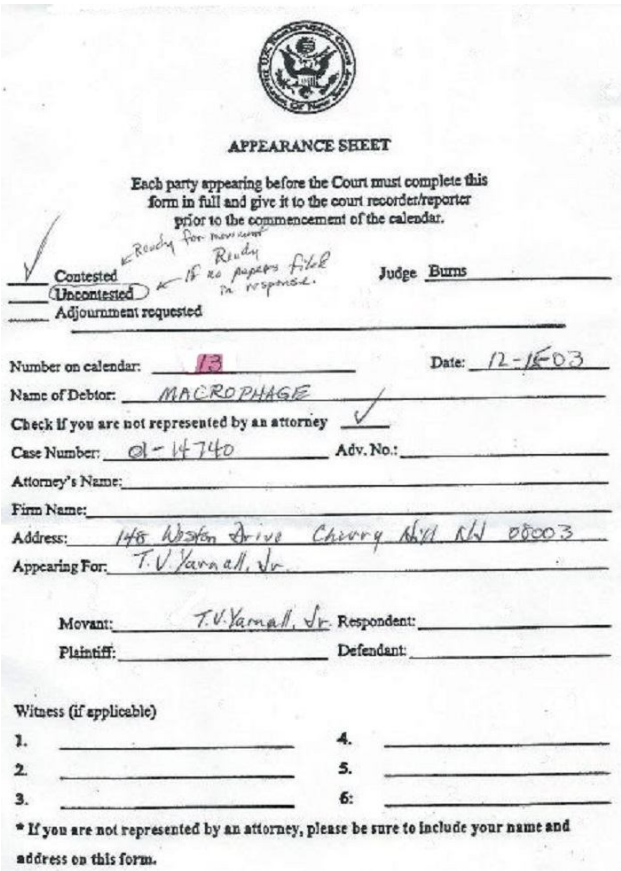 U.S. Bankruptcy Court
District Of New Jersey
APPEARANCE SHEET
Each party appearing before the Court must complete this
form in full and give it to the court recorder/reporter
prior to the commencement of the calendar.
Ready for movant
Ready
If no papers filed
in response.
Contested
Uncontested
Adjournment requested
Judge Burns
Number on calendar: 13 Date: 12-15-03
Name of Debtor: MACROPHAGE
Check if you are not represented by an attorney ✓
Case Number: 01-14740 Adv. No.:
Attorney's Name:
Firm Name:
Address: 148 Weston Drive Cherry Hill NJ 08003
Appearing For: T.V. Yarnall, Jr.
Movant: T.V. Yarnall, Jr. Respondent:
Plaintiff: Defendant:
Witness (if applicable)
1. 4.
2. 5.
3. 6:
* If you are not represented by an attorney, please be sure to include your name and
address on this form.